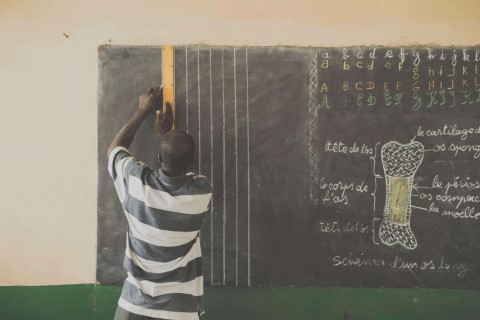 a b c d e f g h i j k l
a b c d e f g h i j k l
A B C D E F G H I J K L
A C D E F G H I J K
le cartilage d
tête de l'os
os spong
le périos
le corps de
l'os
os compac
la moelle
tête de l'os
Schéma d'un os long